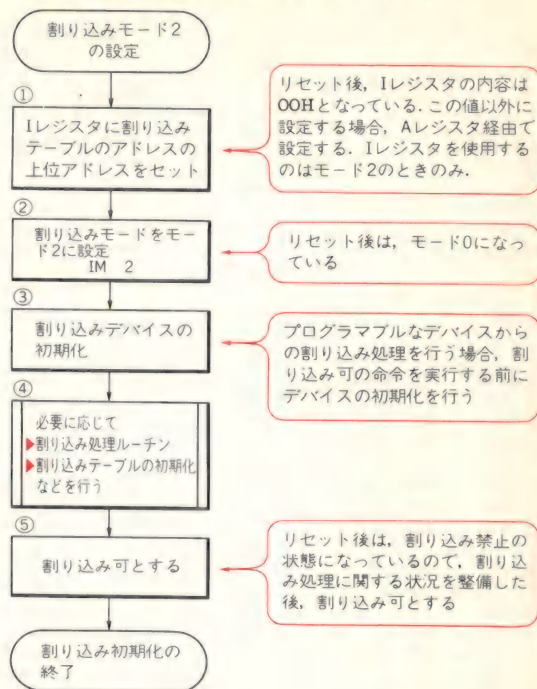 割り込みモード2
の設定
①
Iレジスタに割り込み
テーブルのアドレスの
上位アドレスをセット
リセット後，Iレジスタの内容は
00Hとなっている．この値以外に
設定する場合，Aレジスタ経由で
設定する．Iレジスタを使用する
のはモード2のときのみ．
②
割り込みモードをモー
ド2に設定
IM 2
リセット後は，モード0になっ
ている
③
割り込みデバイスの
初期化
プログラマブルなデバイスから
の割り込み処理を行う場合，割
り込み可の命令を実行する前に
デバイスの初期化を行う
④
必要に応じて
▶割り込み処理ルーチン
▶割り込みテーブルの初期化
などを行う
⑤
割り込み可とする
リセット後は，割り込み禁止の
状態になっているので，割り込
み処理に関する状況を整備した
後，割り込み可とする
割り込み初期化の
終了